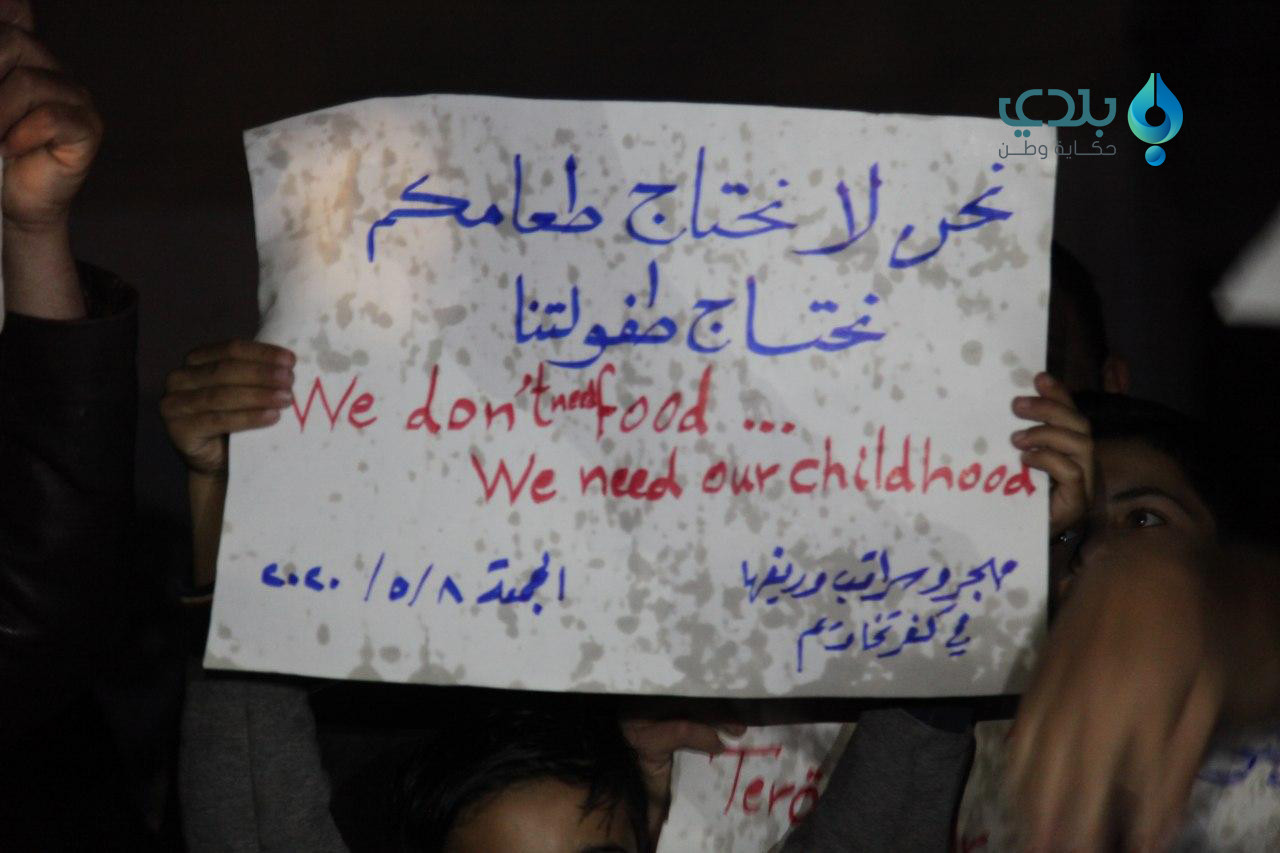 بلدي
حكاية وطن
نحن لا نحتاج طعامكم
نحتاج طفولتنا
We don't need food ...
We need our childhood
مهجرو سراقب وريفها
في كفرتخاريم
الجمعة ٨/٥/٢٠٢٠
Terö